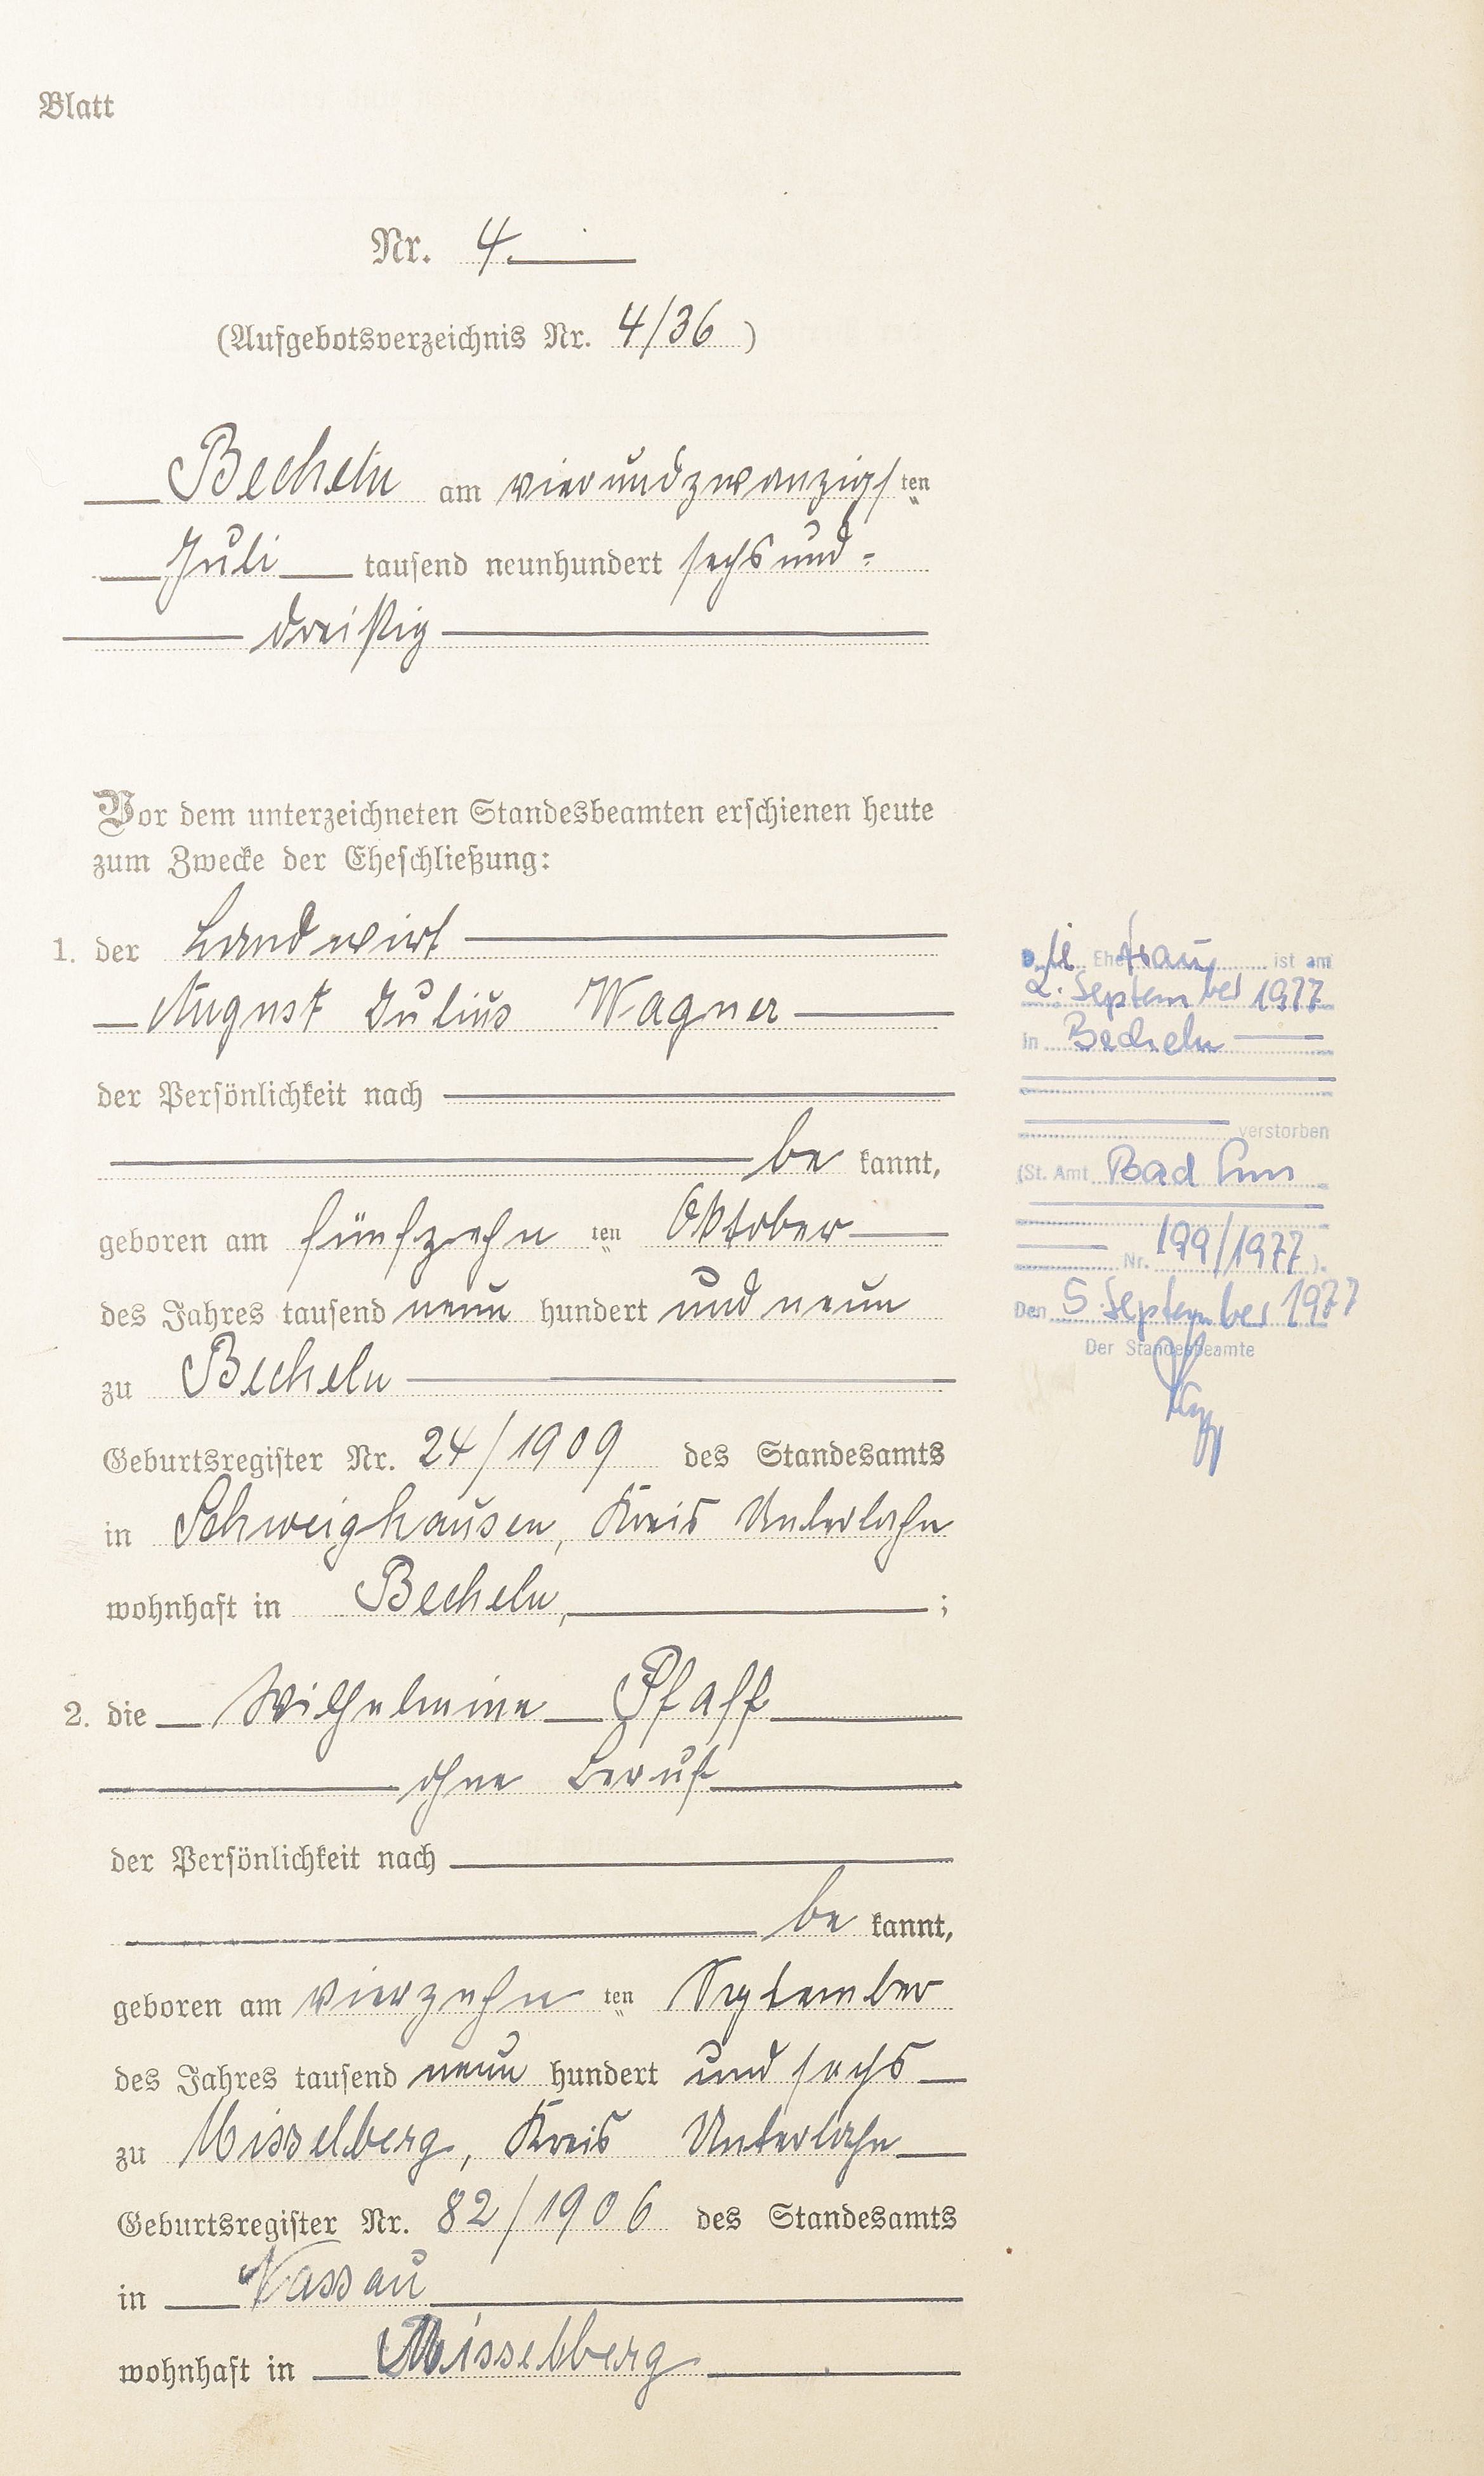 Blatt
Nr. 4.
(Aufgebotsverzeichnis Nr. 4/36)
Becheln am vierundzwanzigsten
Juli tausend neunhundert sechsund-
dreißig
Vor dem unterzeichneten Standesbeamten erschienen heute
zum Zwecke der Eheschließung:
1. der Landwirt
August Julius Wagner
der Persönlichkeit nach
be kannt,
geboren am fünfzehn ten Oktober
des Jahres tausend neun hundert und neun
zu Becheln
Geburtsregister Nr. 24/1909 des Standesamts
in Schweighausen, Kreis Unterlahn
wohnhaft in Becheln, ;
2. die Wilhelmine Pfaff
ohne Beruf
der Persönlichkeit nach
be kannt,
geboren am vierzehn ten September
des Jahres tausend neun hundert und sechs
zu Misselberg, Kreis Unterlahn
Geburtsregister Nr. 82/1906 des Standesamts
in Nassau
wohnhaft in Misselberg
Die Ehefrau ist am
2. September 1977
in Becheln
verstorben
(St. Amt Bad Ems
Nr. 199/1977).
Den 5. September 1977
Der Standesbeamte